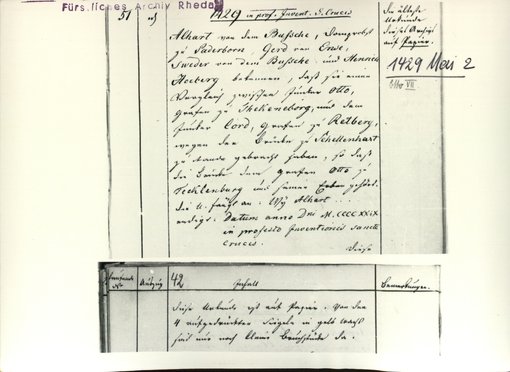 Fürstliches Archiv Rheda
51 n) 1429 in prof. Invent. S. Crucis
Die älteste
Urkunde
dieses Archivs
auf Papier.
1429 Mai 2
Alhart von dem Bußsche, Domprobst
zu Paderborn, Gerd von
Sweder von dem Bußsche und Henrich
bekennen, daß sie einen
Vergleich zwischen Junker Otto,
Grafen zu Thekeneborg, und dem
Junker Cord, Grafen zu Retberg,
wegen der Brücke zu Schellenhart
zu Stande gebracht haben, so daß
die Brücke dem Grafen Otto zu
Tecklenburg und seinen Erben gehört.
die U. fängt an: Wy Alhart ...
endigt: Datum anno Dni M. CCCC XXIX
in profesto Inventionis sancte
crucis.
Diese
Laufende Nr. Auszug 42 Inhalt Bemerkungen.
Diese Urkunde ist auf Papier. Von den
4 aufgedruckten Siegeln in gelb Wachs
sind nur noch kleine Bruchstücke da.